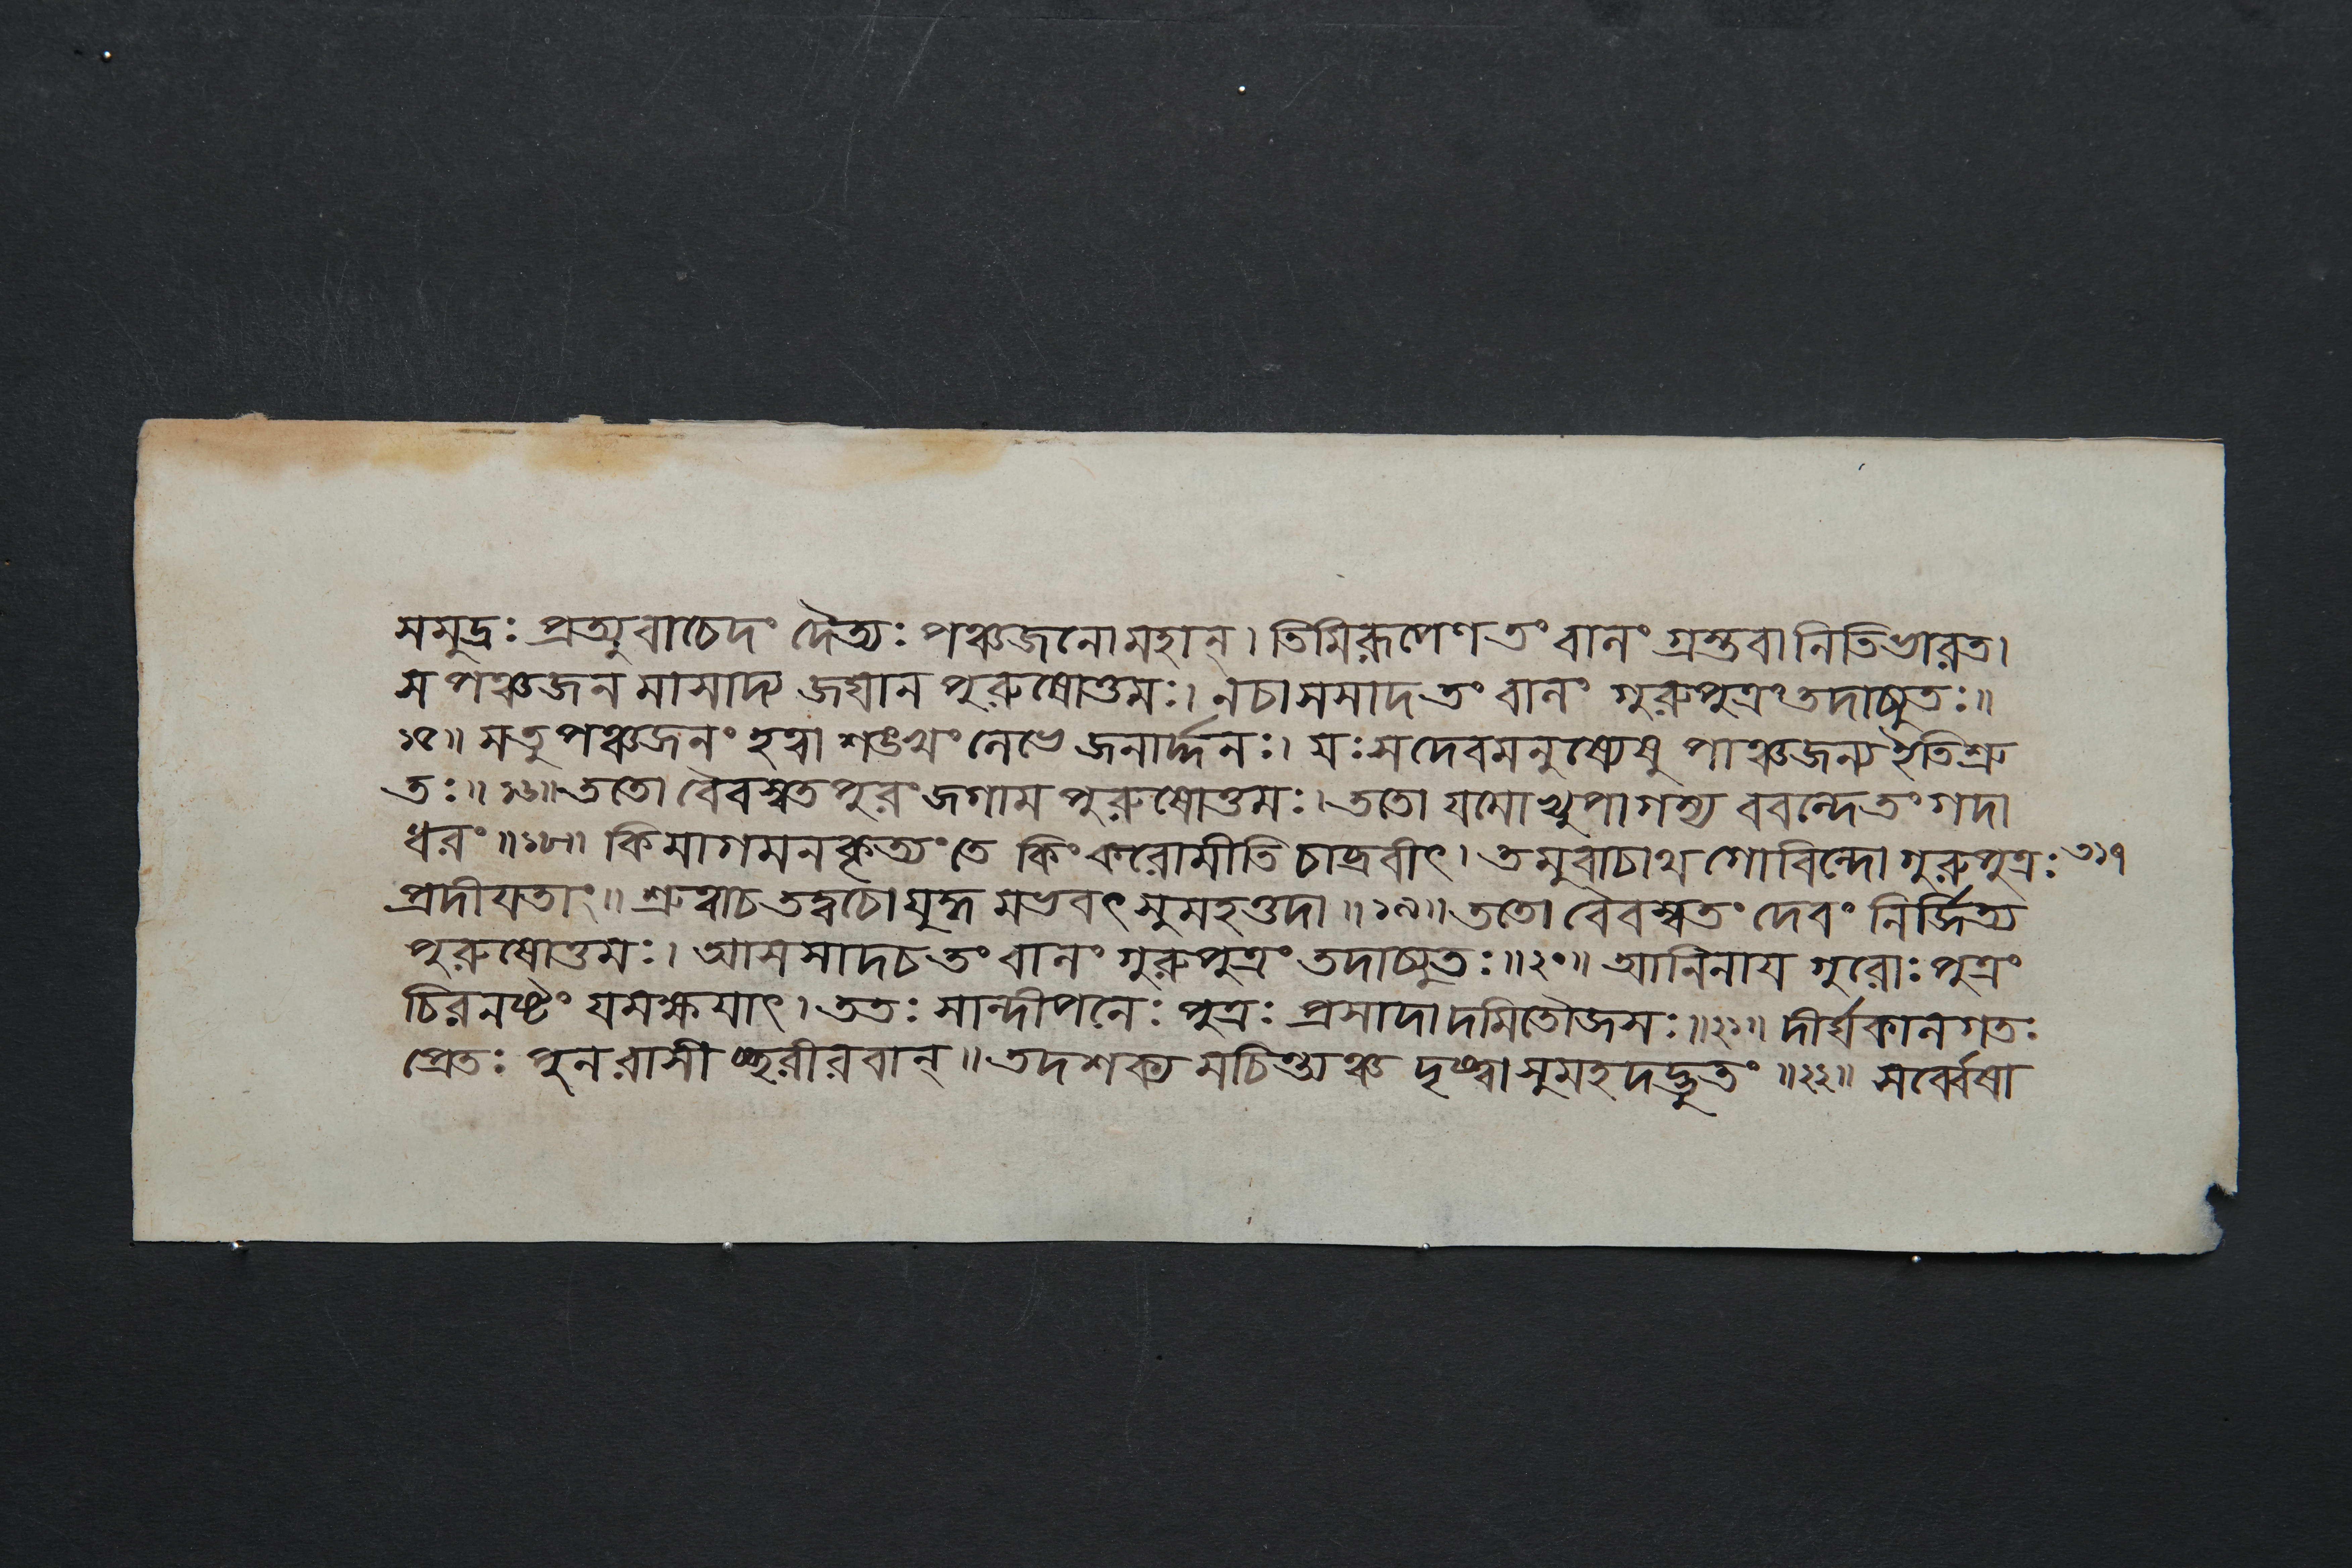 সমুদ্রঃ প্রত্যুবাচেদং দৈত্যঃ পঞ্চজনো মহান্। তিমিরূপেণ তং বালং গ্রস্তবানিতি ভারত।
স পঞ্চজনমাসাদ্য জঘান পুরুষোত্তমঃ। নচাসসাদ তং বালং গুরুপুত্রং তদাচ্যুতঃ॥
১৫॥ সতু পঞ্চজনং হত্বা শঙ্খং লেভে জনার্দ্দনঃ। যঃ স দেবমনুষ্যেষু পাঞ্চজন্য ইতি শ্রু
তঃ॥ ১৬॥ ততো বৈবস্বতপুরং জগাম পুরুষোত্তমঃ। ততো যমোভ্যুপাগম্য ববন্দে তং গদা
ধরং॥১৮॥ কিমাগমনকৃত্যং তে কিং করোমীতি চাব্রবীৎ। তমুবাচাথ গোবিন্দো গুরুপুত্রঃ ৩১৭
প্রদীয়তাং॥ শ্রুত্বাচ তদ্বচো যুদ্ধমভবৎ সুমহত্তদা॥১৯॥ ততো বৈবস্বতং দেবং নির্জিত্য
পুরুষোত্তমঃ। আসসাদ চ তং বালং গুরুপুত্রং তদাচ্যুতঃ॥২০॥ আনিনায় গুরোঃ পুত্রং
চিরনষ্টং যমক্ষয়াৎ। ততঃ সান্দীপনেঃ পুত্রঃ প্রসাদাদমিতৌজসঃ॥২১॥ দীর্ঘকালগতঃ
প্রেতঃ পুনরাসীচ্ছরীরবান্॥ তদশক্যমচিন্ত্যঞ্চ দৃষ্ট্বা সুমহদদ্ভুতং॥২২॥ সর্ব্বেষা